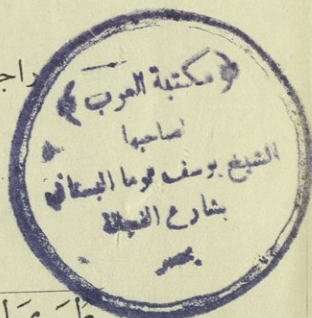 راجـ
﴿ مكتبة العرب ﴾
لصاحبها
الشيخ يوسف توما البستاني
بشارع الفجالة
بمصر